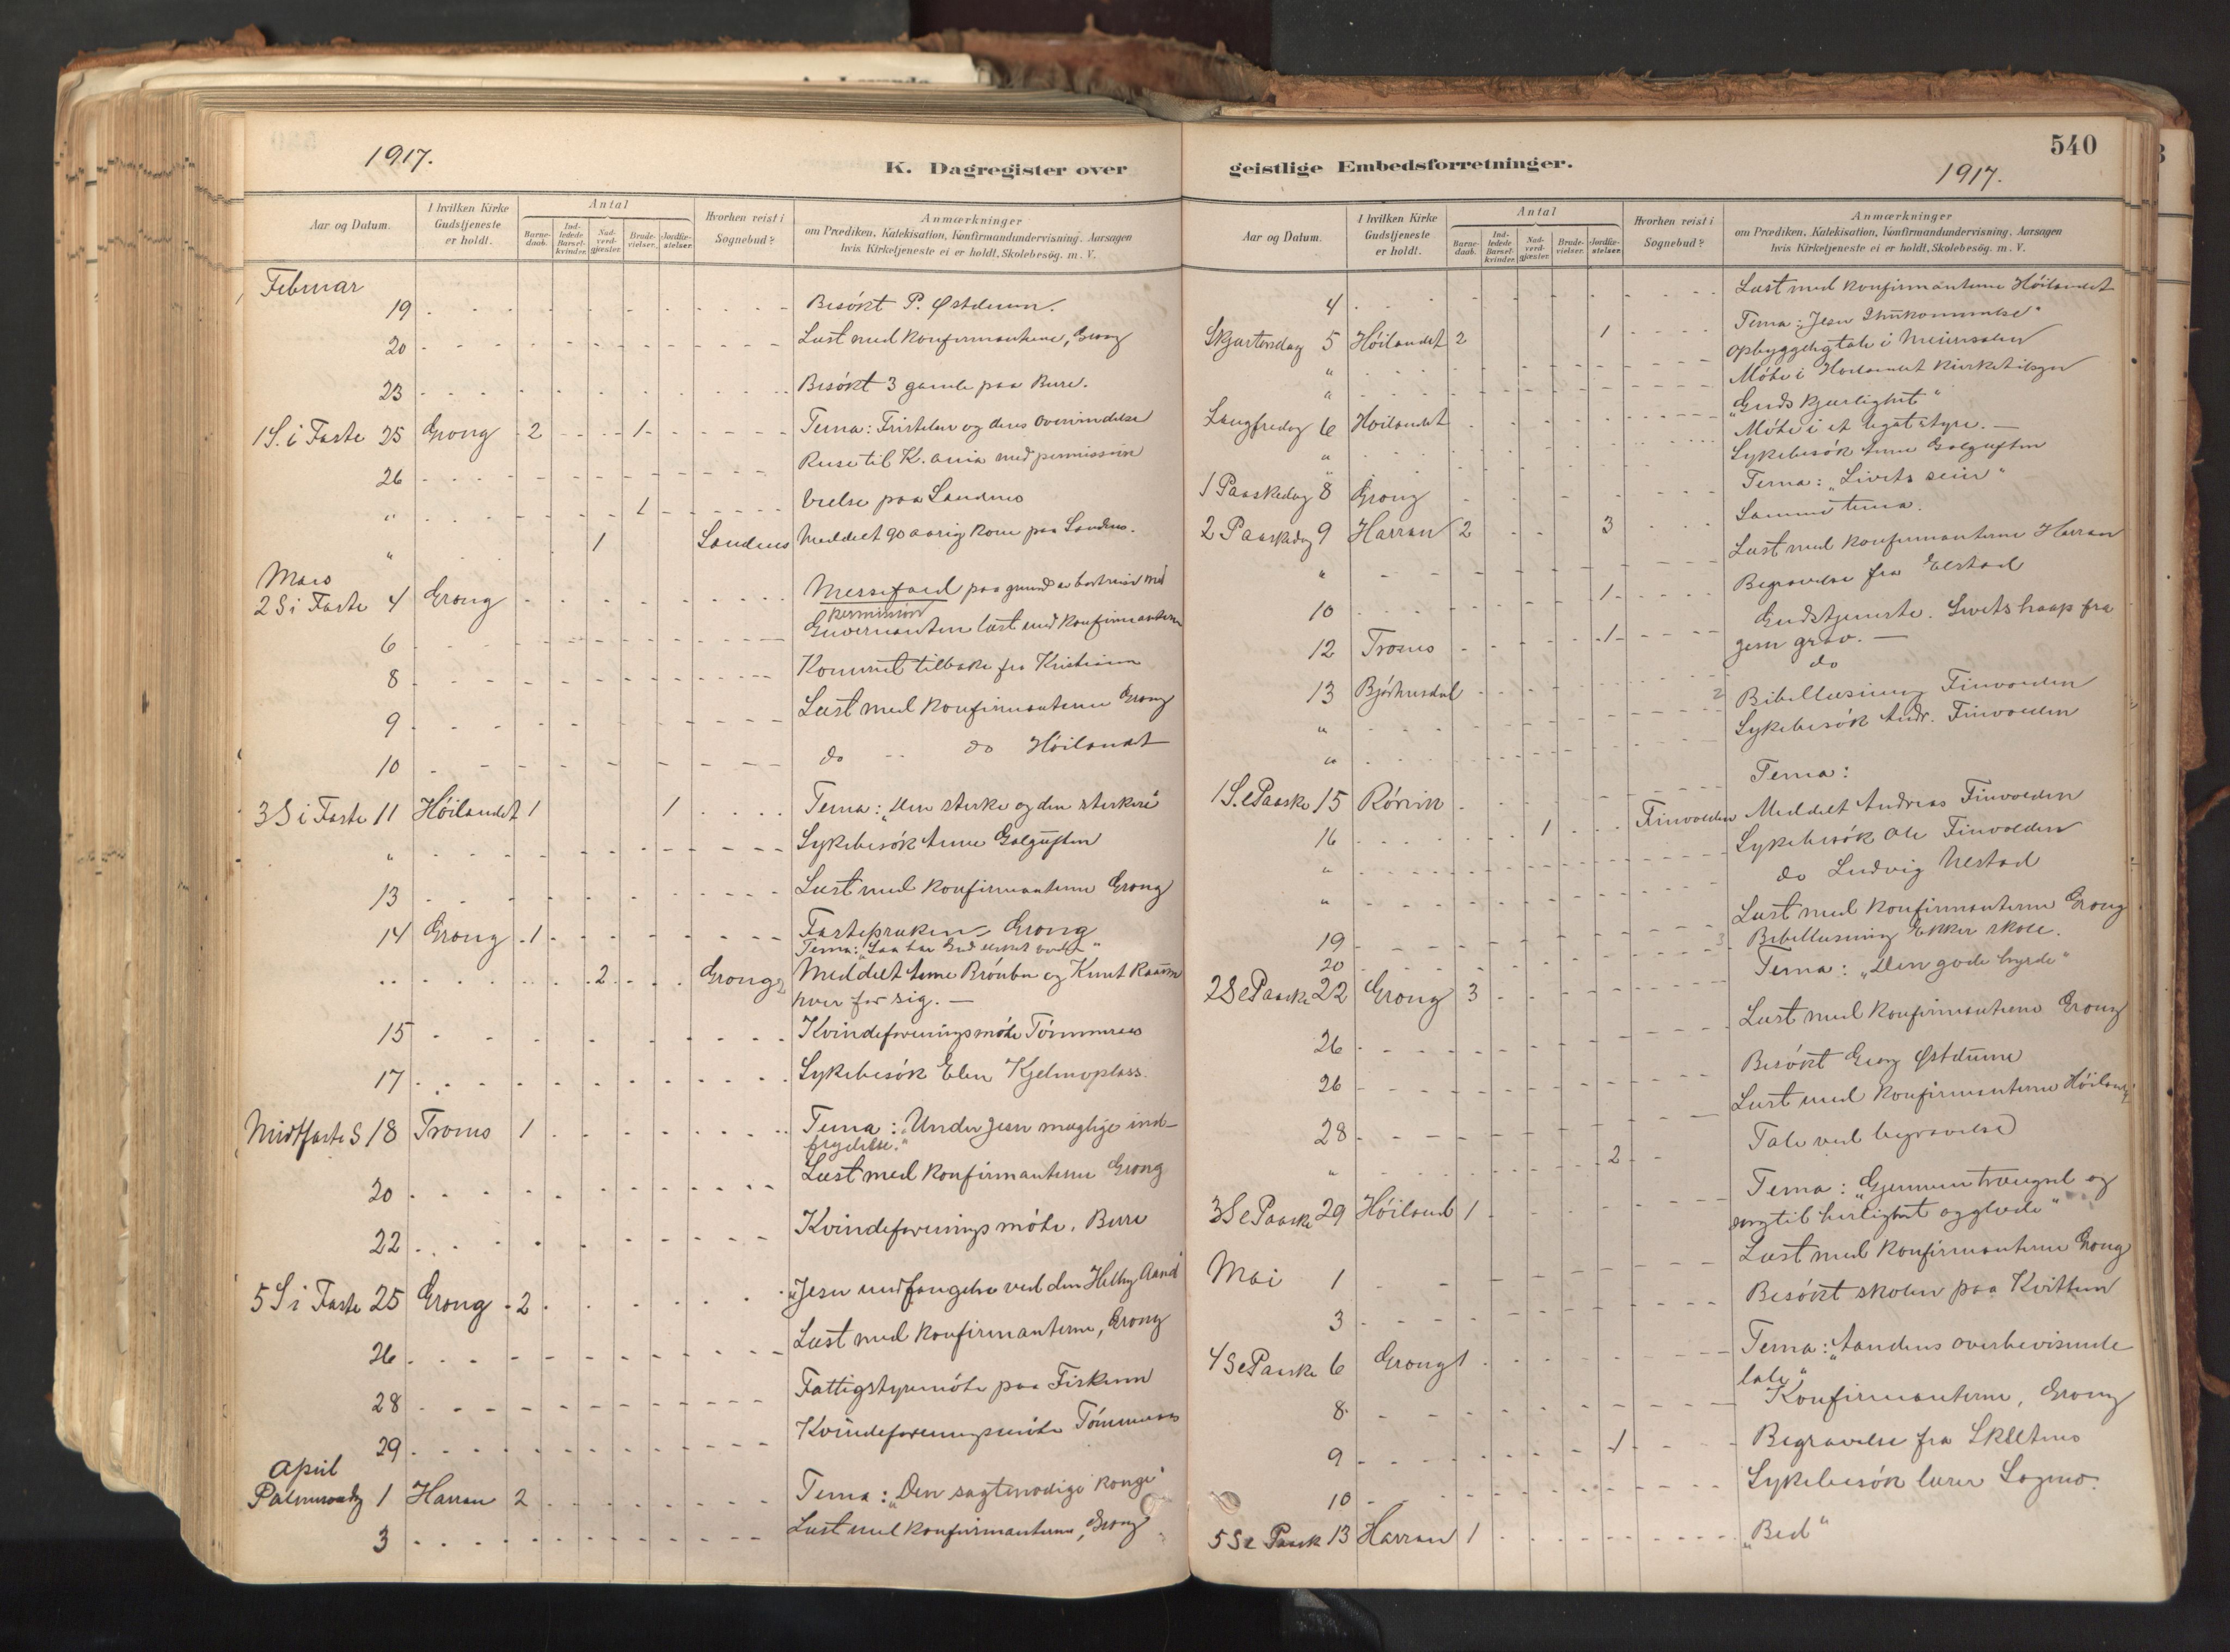 1917.
K. Dagregister over
Aar og Datum.
I hvilken Kirke Gudstjeneste er holdt.
Antal
Barne-daab.
Ind-ledede Barsel-kvinder.
Nad-verd-gjæster.
Brude-vielser.
Jordfæ-stelser.
Hvorhen reist i Sognebud?
Anmærkninger
om Prædiken, Katekisation, Konfirmandundervisning, Aarsagen
hvis Kirketjeneste ei er holdt, Skolebesøg. m. V.
Februar
19 Besökt P. Østdunn.
20 Læst med konfirmanterne, Grong
23 Besökt 3 gamle paa Bure.
1 S. i Faste 25 Grong 2 1 Tema: Fristelser og deres overvindelse
26 Reise til K.ania med permission
" 1 Vielse paa Sandmo
" 1 Sandmo Meddelt 90 aarig kone paa Sandmo.
Mars
2 S i Faste 4 Grong Messefald paa grund av bortreise med
permission
6 Guvernanten læst med konfirmanterne
8 Kommet tilbake fra Kristiania
9 Læst med konfirmanterne Grong
10 do do Höilandet
3 S i Faste 11 Höilandet 1 1 Tema: "Den sterke og den sterkere"
" Sykebesök Anne Galguften
13 Læst med konfirmanterne Grong
14 Grong 1 Fastepræken Grong
Tema: "Saa har Gud elsket verden"
2 Grong 2 Meddelt Anne Brönbo og Knut
hver for sig.
15 Kvindeforeningsmöte Tömmeraas
17 Sykebesök Elen Kjelmoplass.
Midtfaste S 18 Tromo 1 Tema: "Under Jesu mægtige ind-
flydelse."
20 Læst med konfirmanterne Grong
22 Kvindeforeningsmöte, Bure
5 S i Faste 25 Grong 2 "Jesu undfangelse ved den Hellig Aand"
26 Læst med konfirmanterne, Grong
28 Fattigstyremöte paa Fiskum
29 Kvindeforeningsmöte Tömmeraas
April
Palmesondag 1 Harran 2 Tema: "Den sagtmodige konge"
3 Læst med konfirmanterne, Grong
540
geistlige Embedsforretninger.
1917.
Aar og Datum.
I hvilken Kirke Gudstjeneste er holdt.
Antal
Barne-daab.
Ind-ledede Barsel-kvinder.
Nad-verd-gjæster.
Brude-vielser.
Jordfæ-stelser.
Hvorhen reist i Sognebud?
Anmærkninger
om Prædiken, Katekisation, Konfirmandundervisning, Aarsagen
hvis Kirketjeneste ei er holdt, Skolebesøg. m. V.
4 Læst med konfirmanterne Höilandet
Skjærtorsdag 5 Höilandet 2 1 Tema: "Jesu Ihukommelse"
" Opbyggelig tale i
" Möte i Höilandet kirketilsyn
Langfredag 6 Höilandet "Guds kjærlighet"
" Möte i et legatstyre.
" Sykebesök Anne Galguften
1 Paaskedag 8 Grong Tema: "Livets seier"
2 Paaskedag 9 Harran 2 3 Samme tema.
" Læst med konfirmanterne Harran
10 1 Begravelse fra Elstad
12 Tromo 1 Gudstjeneste. Livets haap fra
gem grav.
13 Bjørhusdal do
" 2 Bibellæsning Finvolden
" Sykebesök Andr. Finvolden
1 S. e Paaske 15 Rörvin Tema:
16 1 Finvolden Meddelt Andreas Finvolden
" Sykebesök Ole Finvolden
" do Ludvig Nestad
19 Læst med konfirmanterne Grong
20 3 Bibellæsning Ekker skole.
2 S e Paaske 22 Grong 3 Tema: "Den gode hyrde"
26 Læst med konfirmanterne Grong
26 Besökt Georg Østdunn
28 Læst med konfirmanterne Höiland
" 2 Tale ved begravelse
3 S e Paaske 29 Höiland 1 Tema: "Gjennem trængsel og
sorg til herlighet og glæde"
Mai 1 Læst med konfirmanterne Grong
3 Besökt skolen paa Kvittem
4 S e Paaske 6 Grong 1 Tema: "Aandens overbevisende
tale"
8 Konfirmanterne, Grong
9 1 Begravelse fra Skletmo
10 Sykebesök lærer Sagmo.
5 S e Paask 13 Harran 1 "Bed"